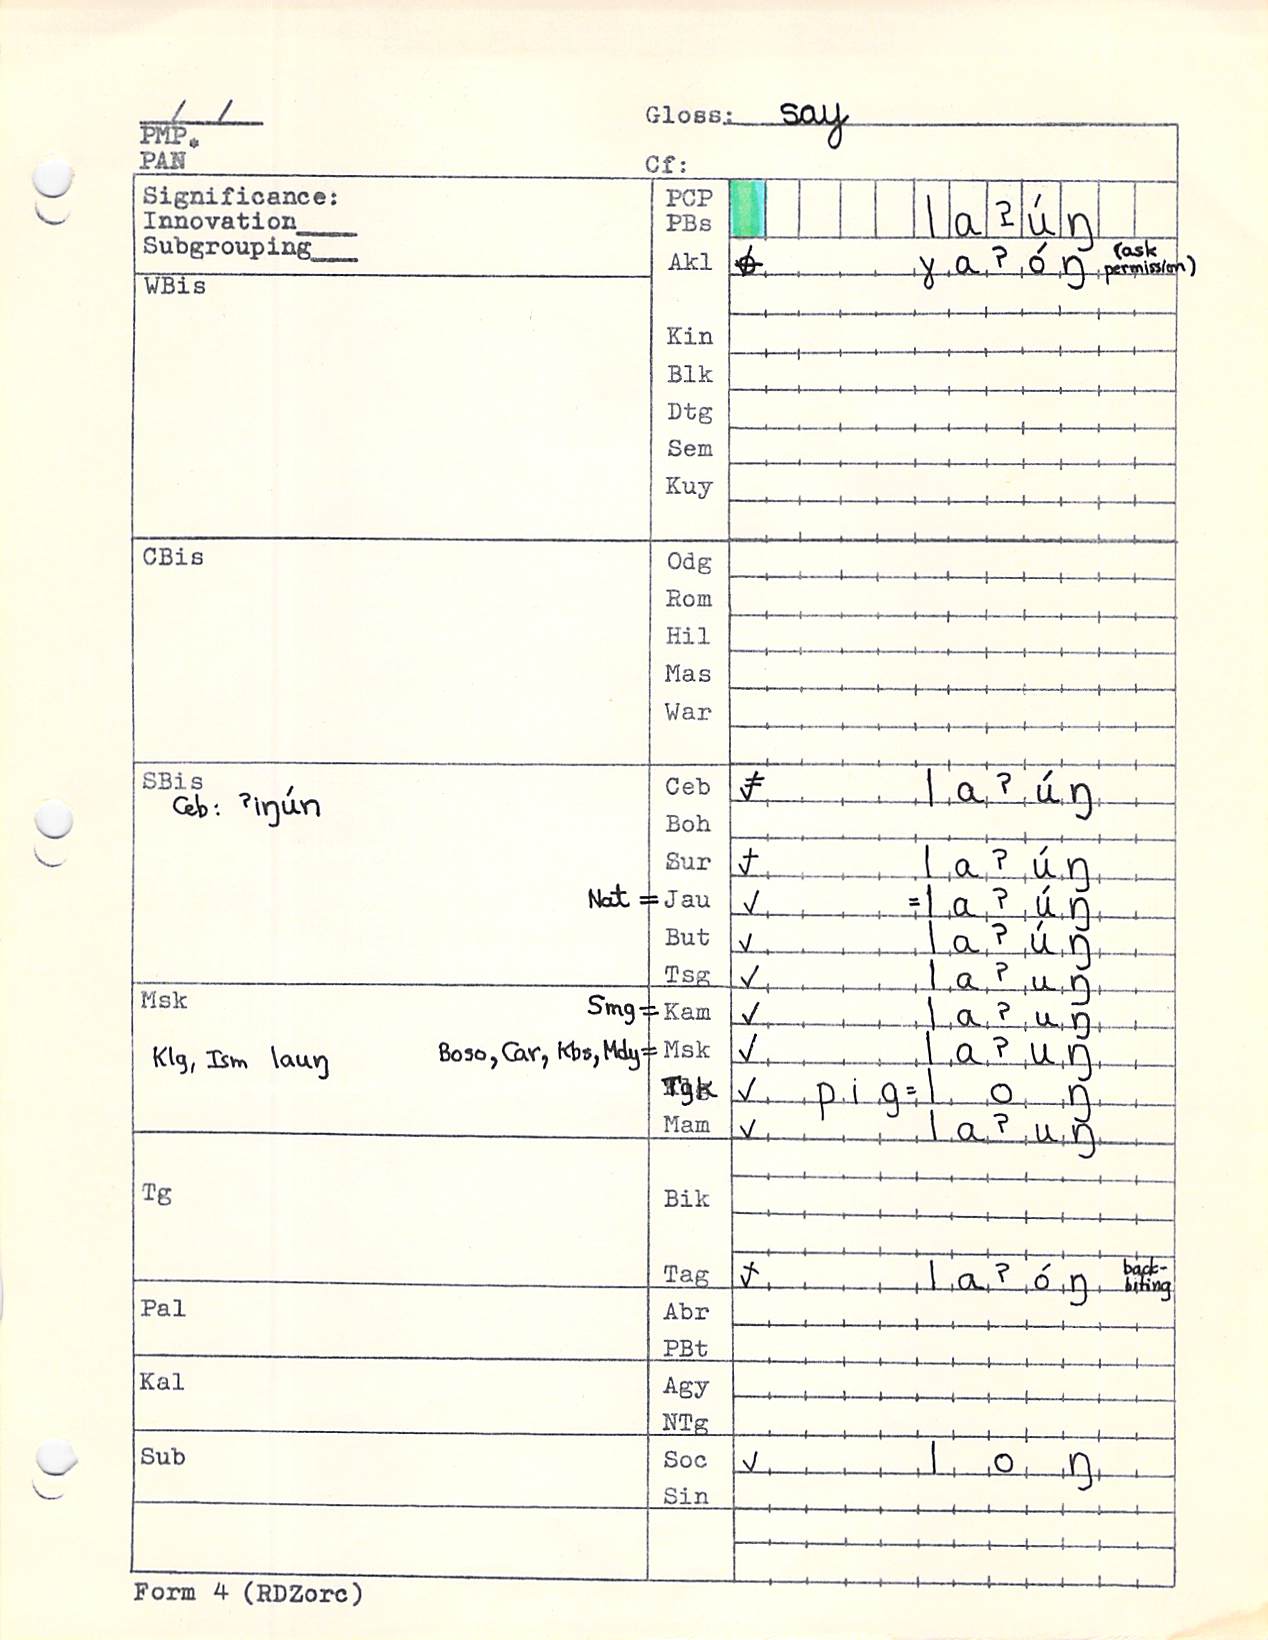 / /
Gloss: say
PMP.
PAN
Cf:
Significance:
Innovation____
Subgrouping___
PCP
PBs laʔúŋ
Akl ɣaʔóŋ (ask permission)
WBis
Kin
Blk
Dtg
Sem
Kuy
CBis
Odg
Rom
Hil
Mas
War
SBis
Ceb: ʔiŋún
Ceb laʔúŋ
Boh
Sur laʔúŋ
Nat = Jau ✓ =laʔúŋ
But ✓ laʔúŋ
Tsg ✓ laʔuŋ
Msk
Smg = Kam ✓ laʔuŋ
Klg, Ism lauŋ
Boso, Car, Kbs, Mdy = Msk ✓ laʔuŋ
Tgk ✓ pig=loŋ
Mam ✓ laʔuŋ
Tg
Bik
Tag laʔóŋ back-biting
Pal
Abr
PBt
Kal
Agy
NTg
Sub
Soc ✓ loŋ
Sin
Form 4 (RDZorc)